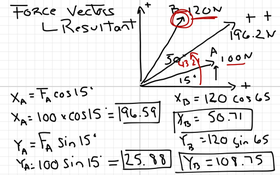 Force Vectors
Resultant
B 120N
196.2N
A
100N
50°
15°
X_A = F_A cos 15°
X_A = 100 x cos 15° = 96.59
Y_A = F_A sin 15°
Y_A = 100 sin 15° = 25.88
X_B = 120 cos 65
X_B = 50.71
Y_B = 120 sin 65
Y_B = 108.75